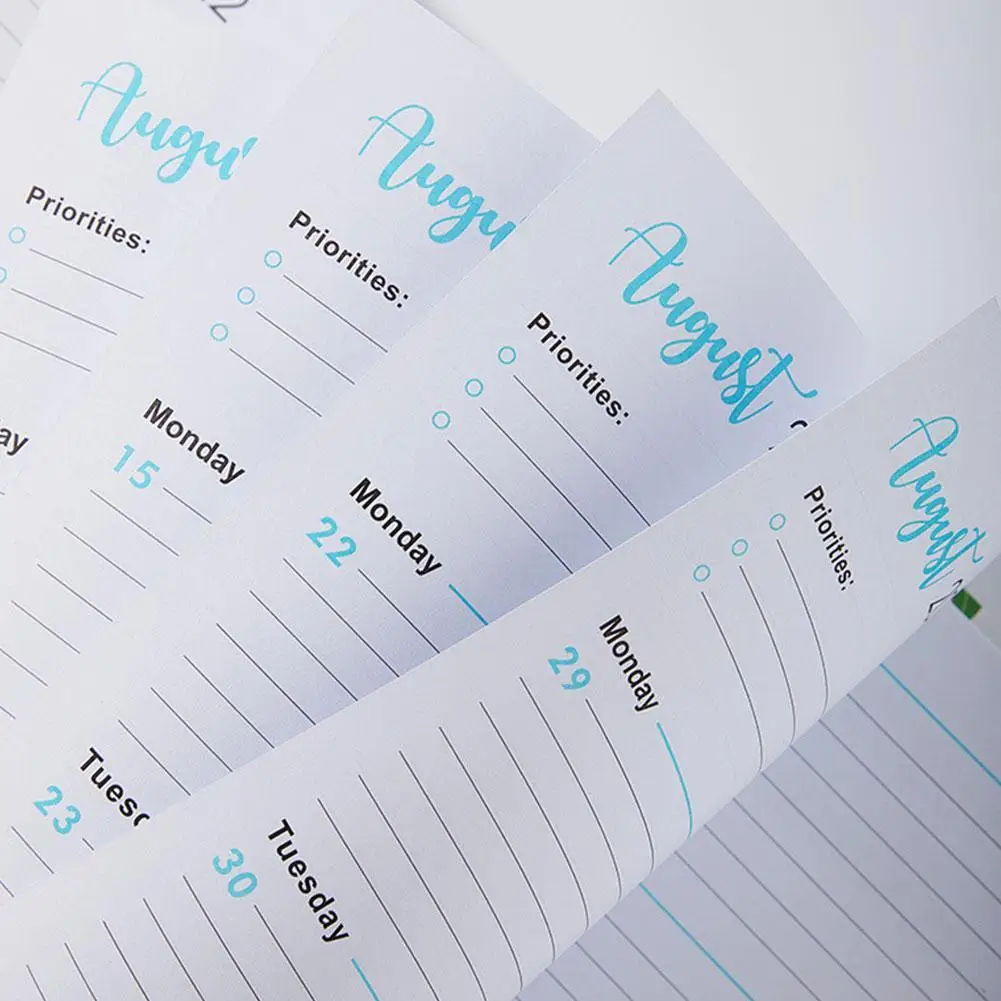 August
Priorities:
August
Priorities:
Monday
15
August
Priorities:
Monday
22
Tuesday
23
August
Priorities:
Monday
29
Tuesday
30